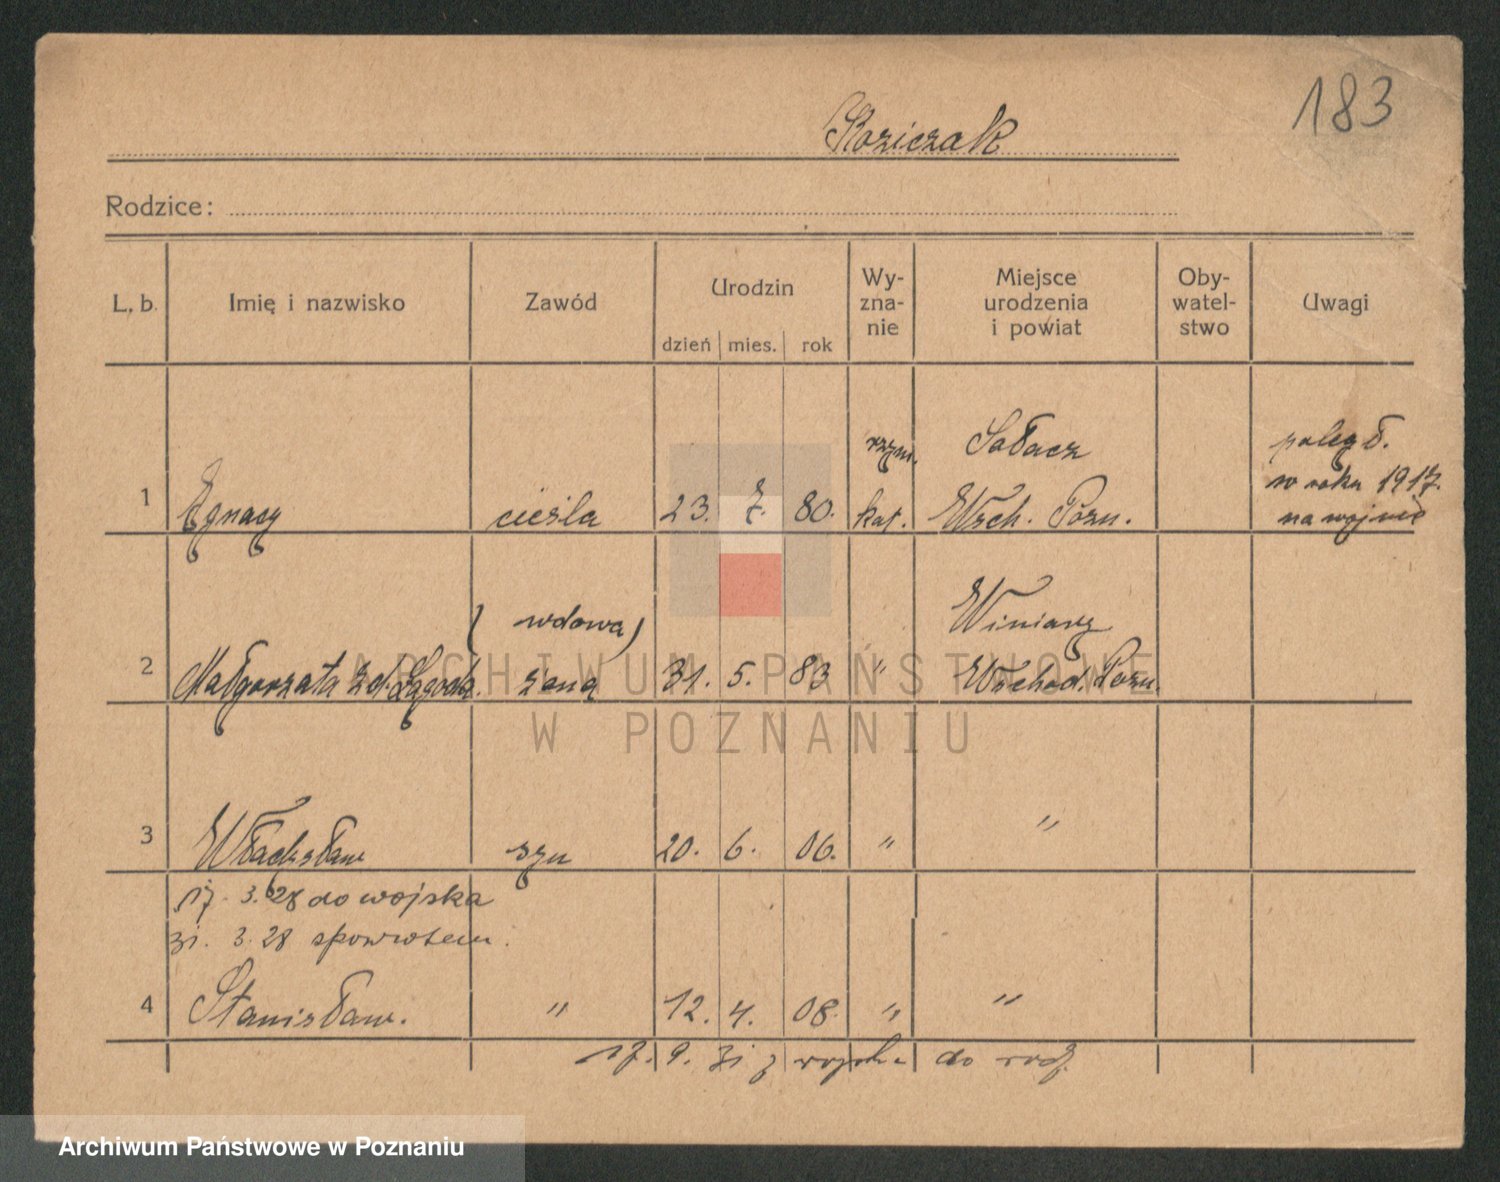 183
Koziczak
Rodzice:
L. b. Imię i nazwisko Zawód Urodzin dzień mies. rok Wy-zna-nie Miejsce urodzenia i powiat Oby-watel-stwo Uwagi
rzym. Sołacz poległ.
1 Ignacy cieśla 23. 7. 80. kat. Wsch. Pozn. w roku 1917. na wojnie
(wdowa) Winiary
2 Małgorzata zd. Łagoda. żona 31. 5. 83 " Wschod. Pozn.
3 Władysław syn 20. 6. 06. " "
17. 3. 28 do wojska
31. 3. 28 spowrotem.
4 Stanisław. " 12. 4. 08. " "
17. 9. 31 z wojska do rodz.
ARCHIWUM PAŃSTWOWE
W POZNANIU
Archiwum Państwowe w Poznaniu